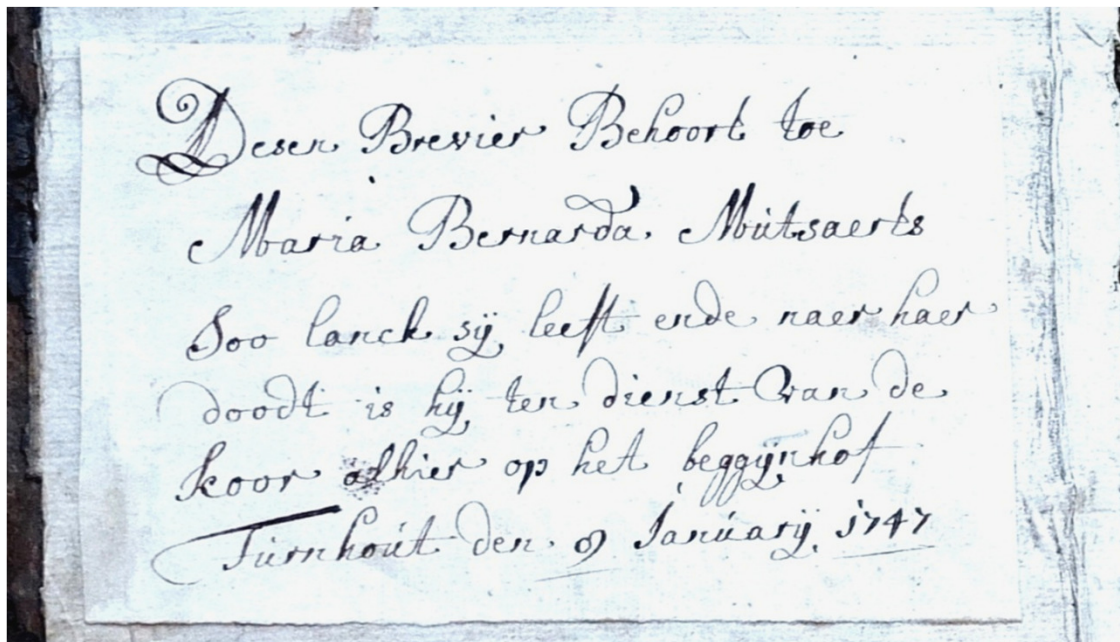 Desen Brevier Behoort toe
Maria Bernarda Mútsaerts
Soo lanck sÿ leeft ende naer haer
doodt is hÿ ten dienst van de
koor alhier op het beggÿnhof
Túrnhoút den 9 Janúarÿ 1747